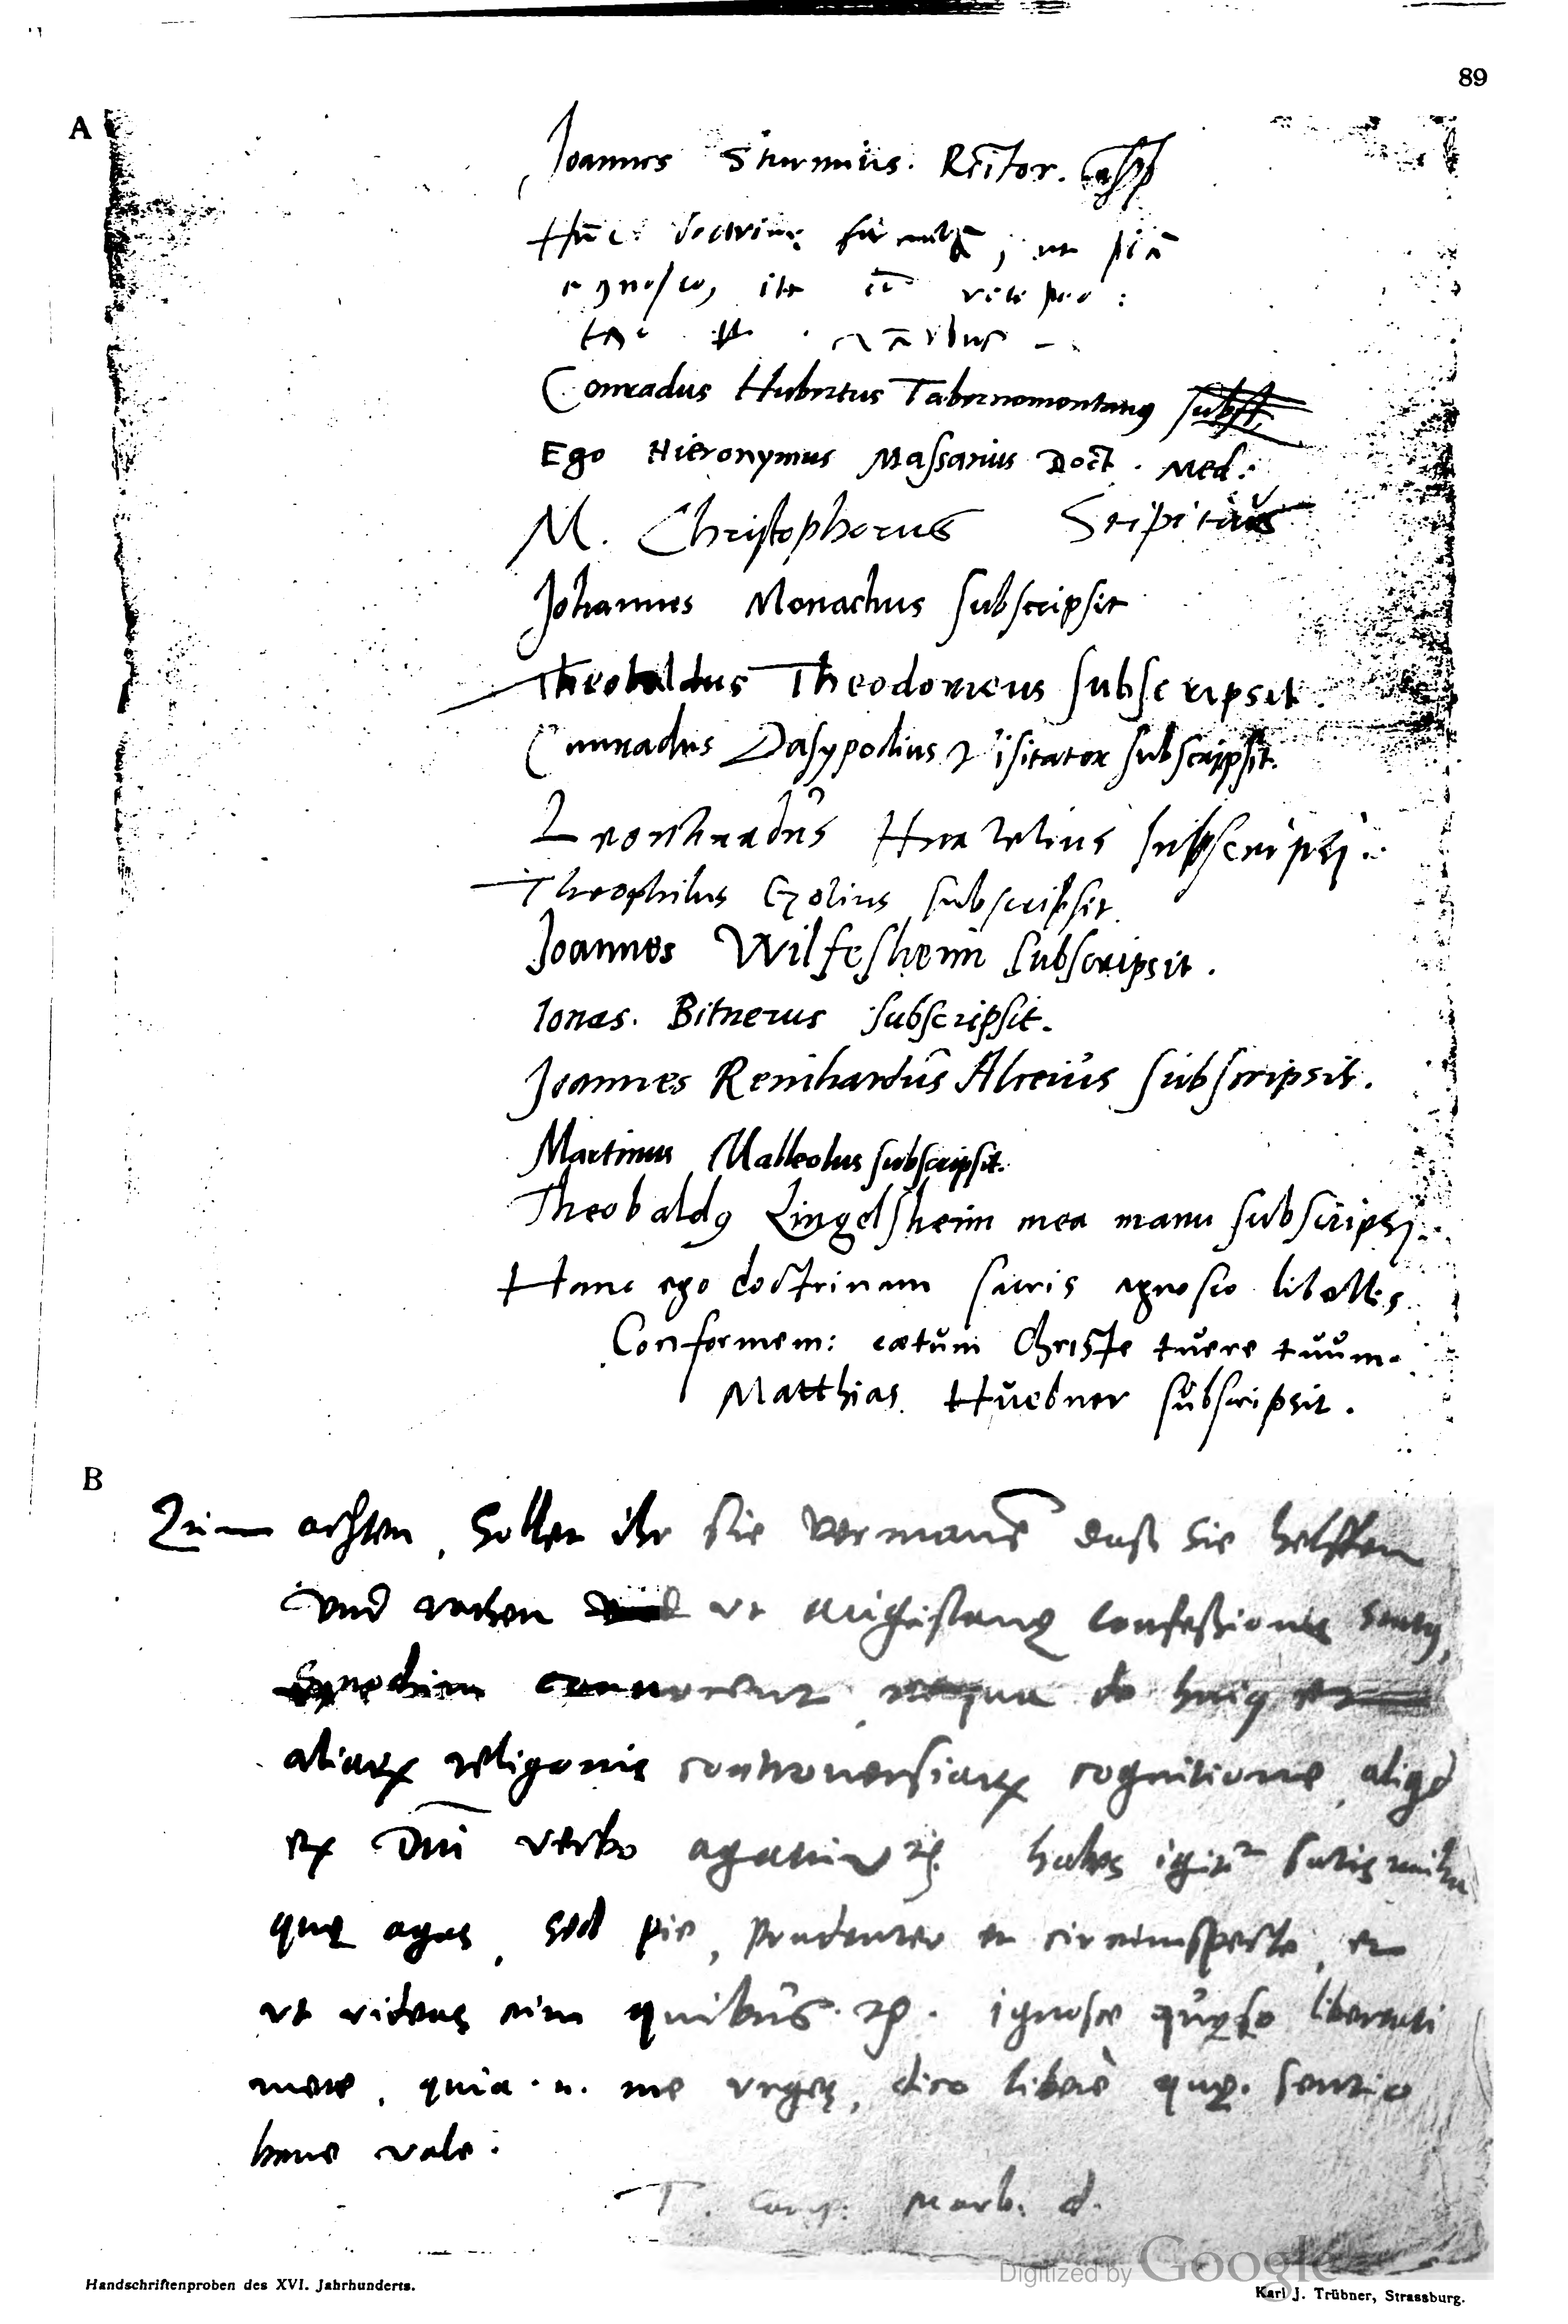 89
A
Joannes Sturmius. Rector.
Hāc doctrinę formulā, ut piā
agnosco, ita
Conradus Hubertus Tabernomontanus subss.
Ego Hieronymus Massarius Doct. Med:
M. Christophorus
Johannes Monachus subscripsit
Theobaldus Theodoricus subscripsit
Cunradus Dasypodius Visitator subscripsit.
Leonhardus Hertelius subscripsi.
Theophilus Golius subscripsit
Joannes Wilfesheim subscripsit.
Ionas. Bitnerus subscripsit.
Joannes Reinhardus Alceius subscripsit.
Martinus Malleolus subscripsit.
Theobaldꝰ Lingelsheim mea manu subscripsi.
Hanc ego doctrinam sacris agnosco libellis
Conformem: cœtum Christe tuere tuum.
Matthias Huebner subscripsit.
B
Zum achten, sollen ihr sie vermanē daß sie helffen
und rathen ut Augustanę confessionis
Synodum de huiꝰ
aliarꝝ religonis controversiarꝝ cognitione, aliqd
ex Dnī verbo habes igitur satis
quę agas, sed pie, prudenter et circumspecte, et
ut videas cum quibus. ꝛc. ignosce quęso libertati
meæ, quia .n. me urges, dico liberè quę sentio
bene vale.
T. Marb. d.
Handschriftenproben des XVI. Jahrhunderts.
Digitized by Google
Karl J. Trübner, Strassburg.